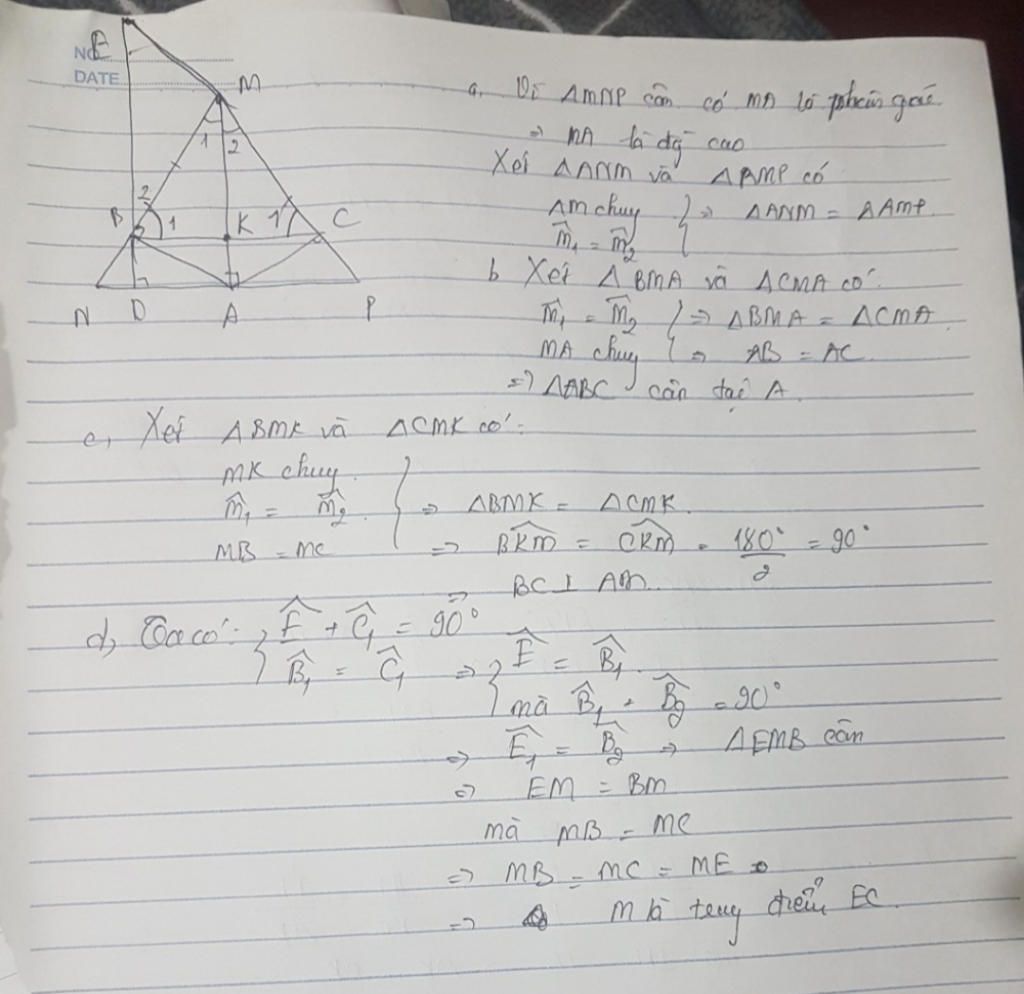 NO
DATE
E
M
1 2
2
B 1 K 1 C
N D A P
a, Vì ΔMNP cân có MA là phân giác
⇒ MA là đg cao
Xét ΔANM và ΔAMP có
AM chung } ⇒ ΔANM = ΔAMP.
M̂₁ = M̂₂
b Xét ΔBMA và ΔCMA có:
M̂₁ = M̂₂ } ⇒ ΔBMA = ΔCMA
MA chung ⇒ AB = AC.
⇒ ΔABC cân tại A.
c, Xét ΔBMK và ΔCMK có:
MK chung.
M̂₁ = M̂₂ } ⇒ ΔBMK = ΔCMK.
MB = MC ⇒ BKM = CKM = 180°/2 = 90°
⇒ BC ⊥ AM.
d, Ta có: { Ê + Ĉ₁ = 90°
B̂₁ = Ĉ₁ ⇒ { Ê = B̂₁.
mà B̂₁ + B̂₂ = 90°
⇒ Ê₁ = B̂₂ ⇒ ΔEMB cân
⇒ EM = BM
mà MB = MC
⇒ MB = MC = ME
⇒ M là trung điểm EC.